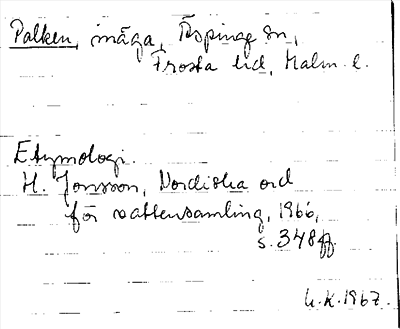 Palken, måga, Äspinge sn,
Frosta hd, Malm. l.
Etymologi.
H. Jonsson, Nordiska ord
för vattensamling, 1966,
s. 348 ff.
U.K. 1967.